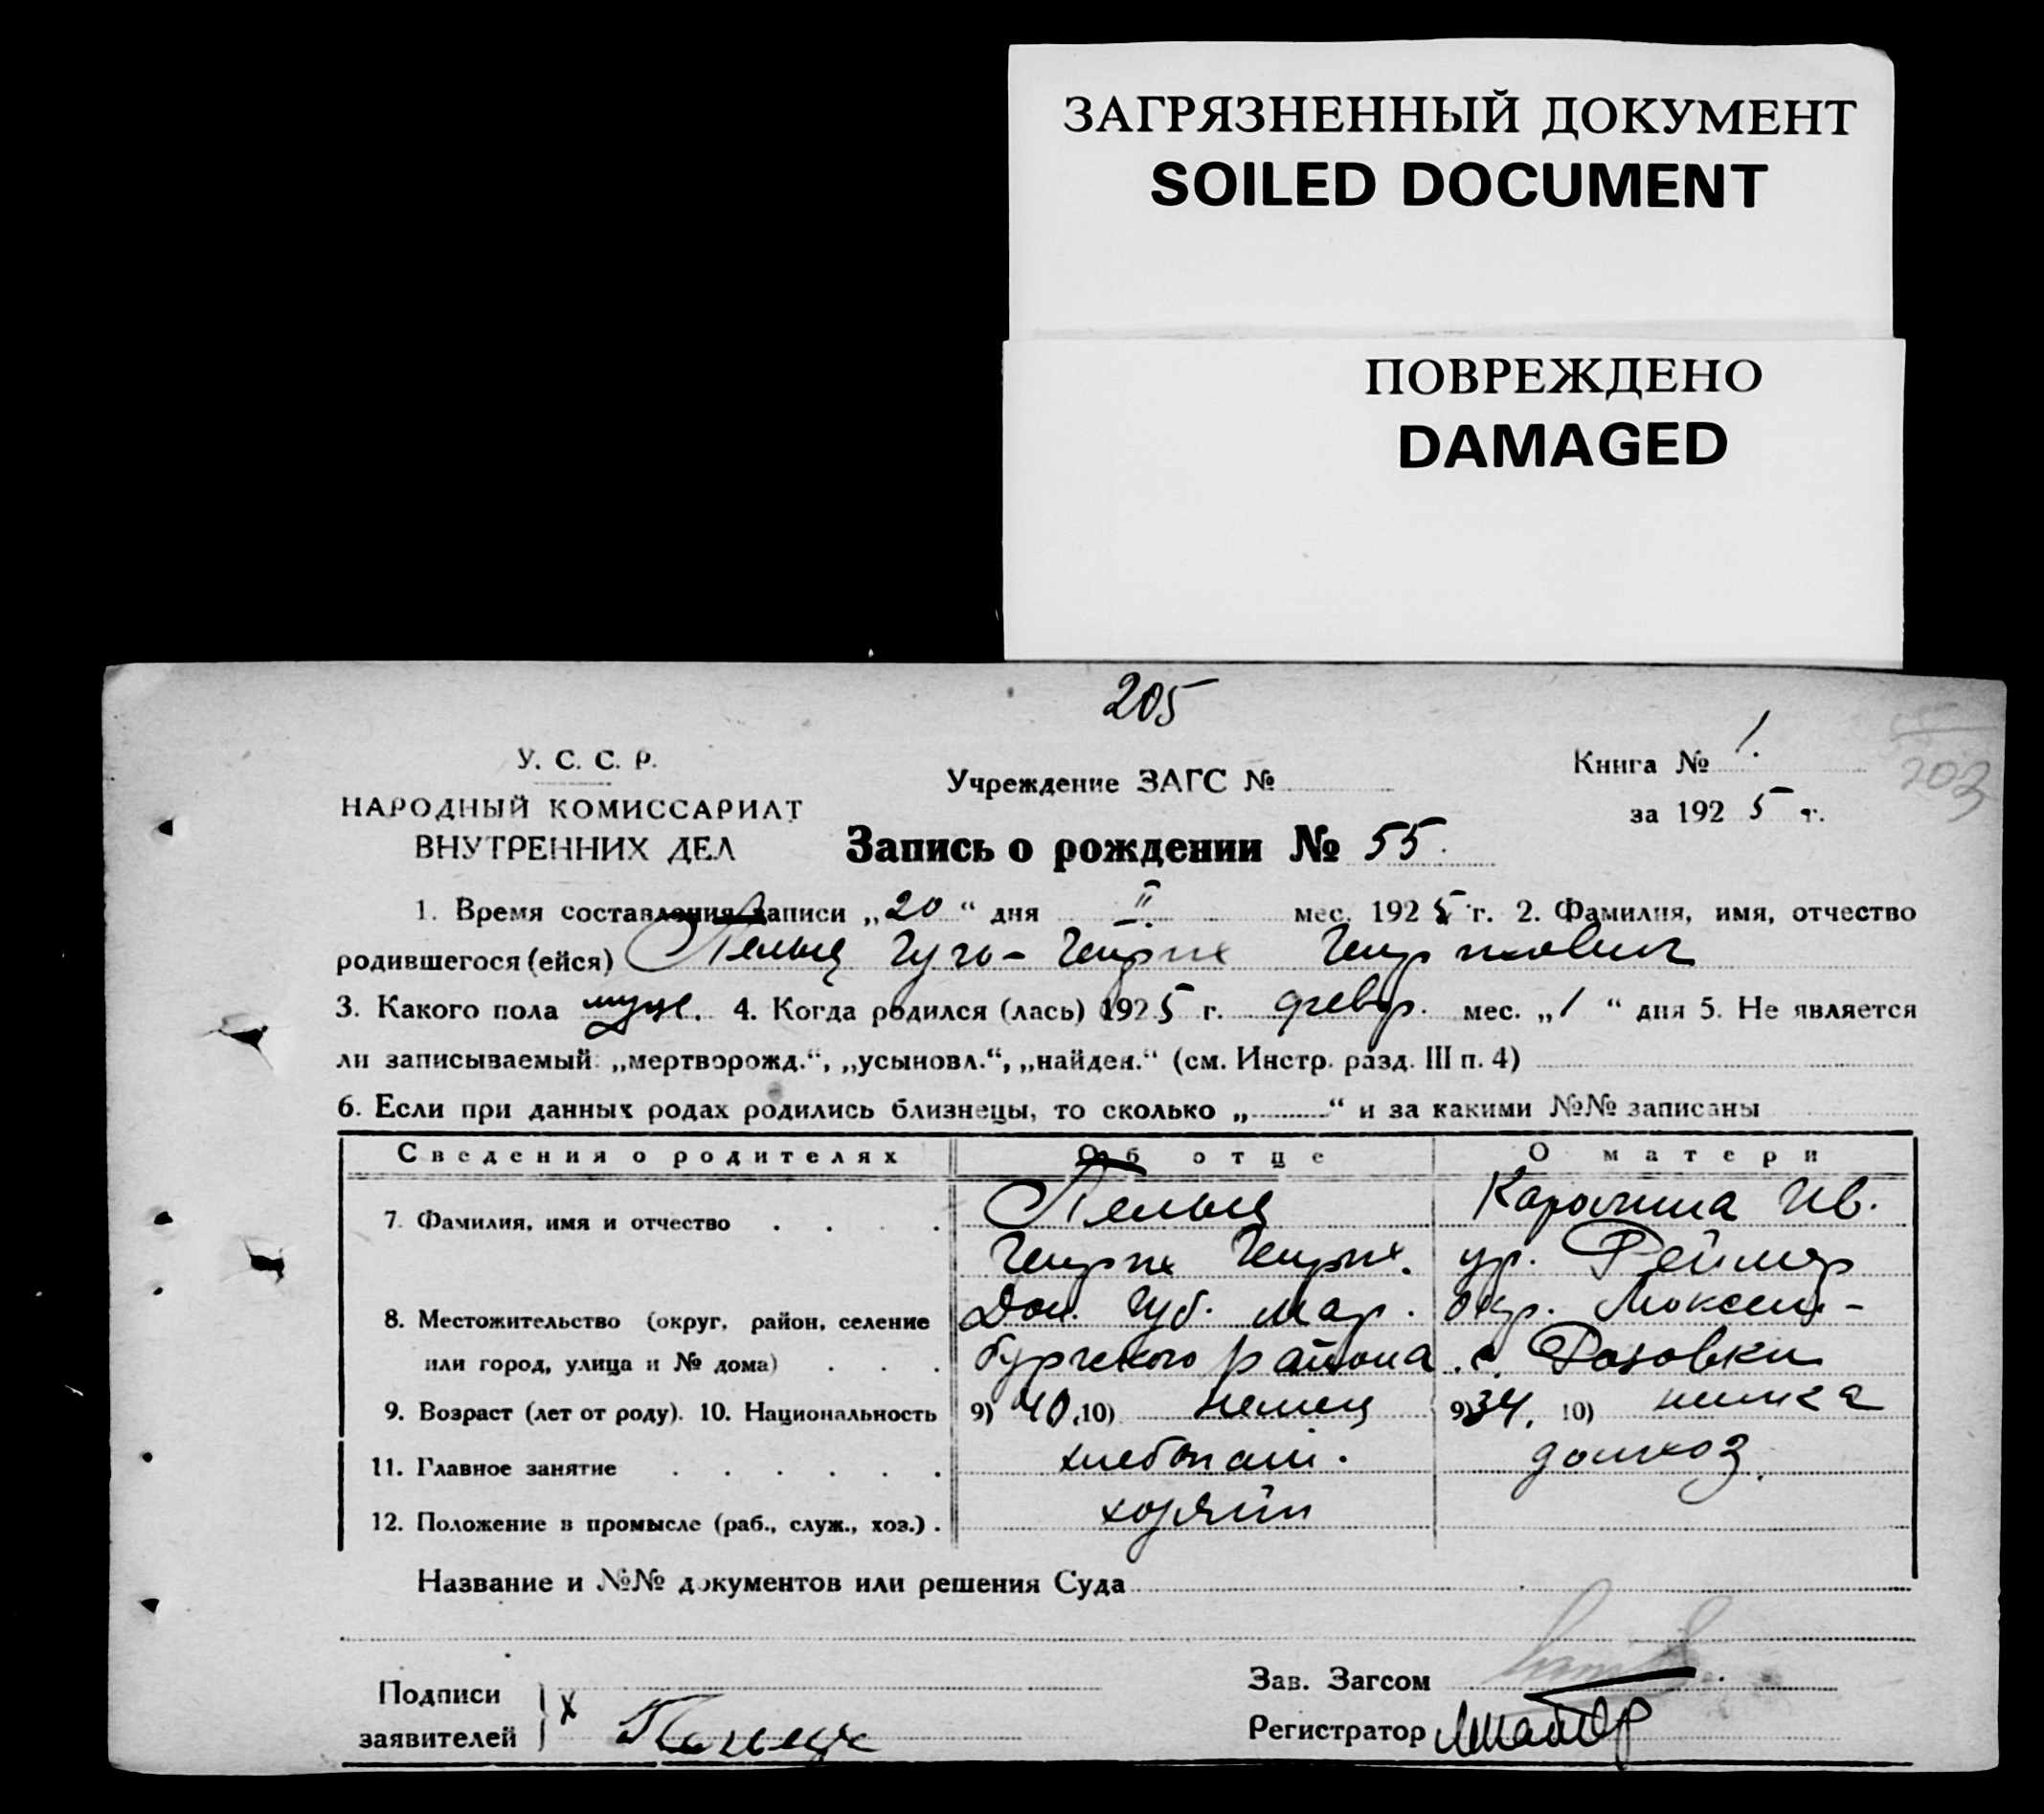 ЗАГРЯЗНЕННЫЙ ДОКУМЕНТ
SOILED DOCUMENT
ПОВРЕЖДЕНО
DAMAGED
205
У. С. С. Р.
НАРОДНЫЙ КОМИССАРИАТ
ВНУТРЕННИХ ДЕЛ
Учреждение ЗАГС №
Книга № 1.
за 1925 г.
203
Запись о рождении № 55.
1. Время составления записи „20“ дня II мес. 1925 г. 2. Фамилия, имя, отчество
родившегося (ейся) Пельц Гуго-Генрих Генрихович
3. Какого пола муж. 4. Когда родился (лась) 1925 г. февр. мес. „1“ дня 5. Не является
ли записываемый: „мертворожд.“, „усыновл.“, „найден.“ (см. Инстр. разд. III п. 4)
6. Если при данных родах родились близнецы, то сколько „ “ и за какими №№ записаны
Сведения о родителях Об отце О матери
7. Фамилия, имя и отчество Пельц Каролина Ив.
Генрих Генрих. ур. Реймер
8. Местожительство (округ, район, селение Дон. Губ. Мар. окр. Люксем-
или город, улица и № дома) бургского района с. Розовки
9. Возраст (лет от роду). 10. Национальность 9) 40, 10) немец 9) 34, 10) немка
11. Главное занятие хлебопаш. домхоз.
12. Положение в промысле (раб., служ., хоз.) хозяин
Название и №№ документов или решения Суда
Подписи
заявителей } х
Зав. Загсом
Регистратор